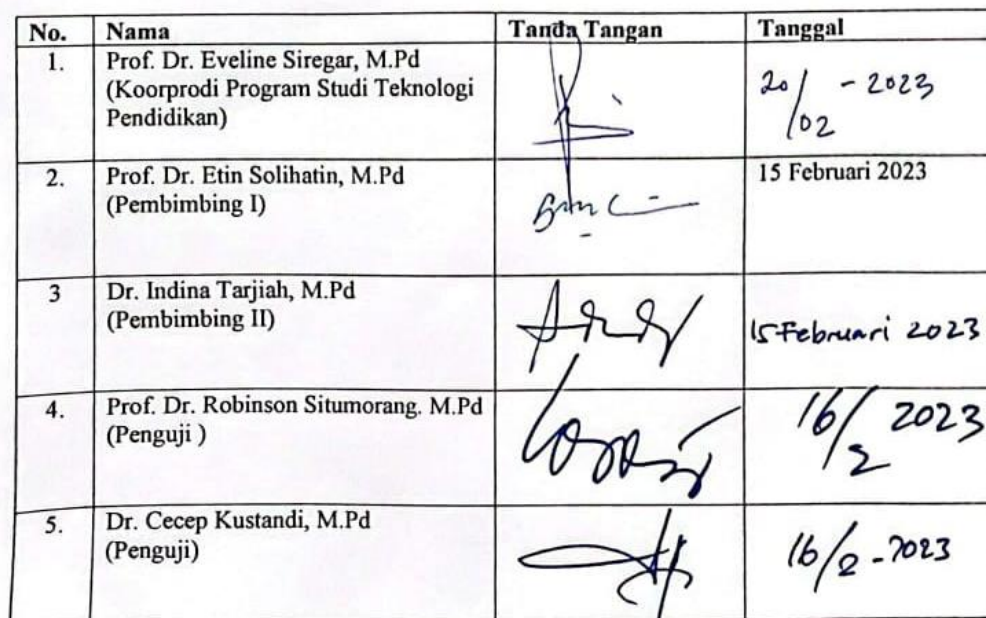 No. Nama Tanda Tangan Tanggal
1. Prof. Dr. Eveline Siregar, M.Pd
(Koorprodi Program Studi Teknologi
Pendidikan)
20/02 - 2023
2. Prof. Dr. Etin Solihatin, M.Pd
(Pembimbing I)
15 Februari 2023
3 Dr. Indina Tarjiah, M.Pd
(Pembimbing II)
15 Februari 2023
4. Prof. Dr. Robinson Situmorang. M.Pd
(Penguji )
16/2 2023
5. Dr. Cecep Kustandi, M.Pd
(Penguji)
16/2 - 2023